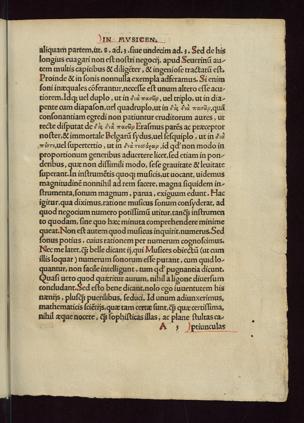 IN MVSICEN.
aliquam partem, ut. 8. ad. 3. siue undecim ad. 3. Sed de his
longius euagari non est nostri negocij, apud Seuerinũ au-
tem multis capitibus & diligẽter, & ingeniose tractatũ est.
Proinde & in sonis nonnulla exempla adferamus. Si enim
soni inæquales cõferantur, necesse est unum altero esse acu-
tiorem. Idq; uel duplo, ut in διὰ πασῶν, uel triplo, ut in dia-
pente cum diapason, aut quadruplo, ut in δὶς διὰ πασῶν, quã
consonantiam egredi non patiuntur eruditorum aures, ut
recte disputat de δὶς διὰ πασῶν Erasmus parẽs ac præceptor
noster, & immortale Belgarũ sydus, uel sesquiplo, ut in διὰ
πέντε, uel supertertio, ut in διὰ τεσσάρων, id qđ non modo in
proportionum generibus aduertere licet, sed etiam in pon-
deribus, quæ non dissimili modo, sese grauitate & leuitate
superant. In instrumẽtis quoq; musicis, ut uocant, uidemus
magnitudinẽ nonnihil ad rem facere, magna siquidem in-
strumenta, sonum magnum, parua, exiguum edunt. Hac
igitur, qua diximus, ratione musicus sonum consyderat, ad
quod negotium numero potissimũ utitur, tancq̃ instrumen-
to quodam, sine quo hæc minuta comprehendere minime
queat. Non est autem quod musicus inquirit, numerus. Sed
sonus potius, cuius rationem per numerum cognoscimus.
Nec me latet, cq̃ belle dicant ij, qui Musices obiectũ (ut cum
illis loquar) numerum sonorum esse putant, cum quid lo-
quantur, non facile intelligunt, tum qđ pugnantia dicunt.
Quasi uero quod quæritur aurum, nihil a ligone diuersum
concludant. Sed esto bene dicant, nolo ego iuuentutem his
nænijs, pluscq̃ puerilibus, seduci. Id unum adiunxerimus,
mathematicis sciẽtijs, quæ tam certæ sunt, cq̃ quæ certissima,
nihil æque nocere, cq̃ sophisticas illas, ac plane stultas ca-
A 3 ptiunculas